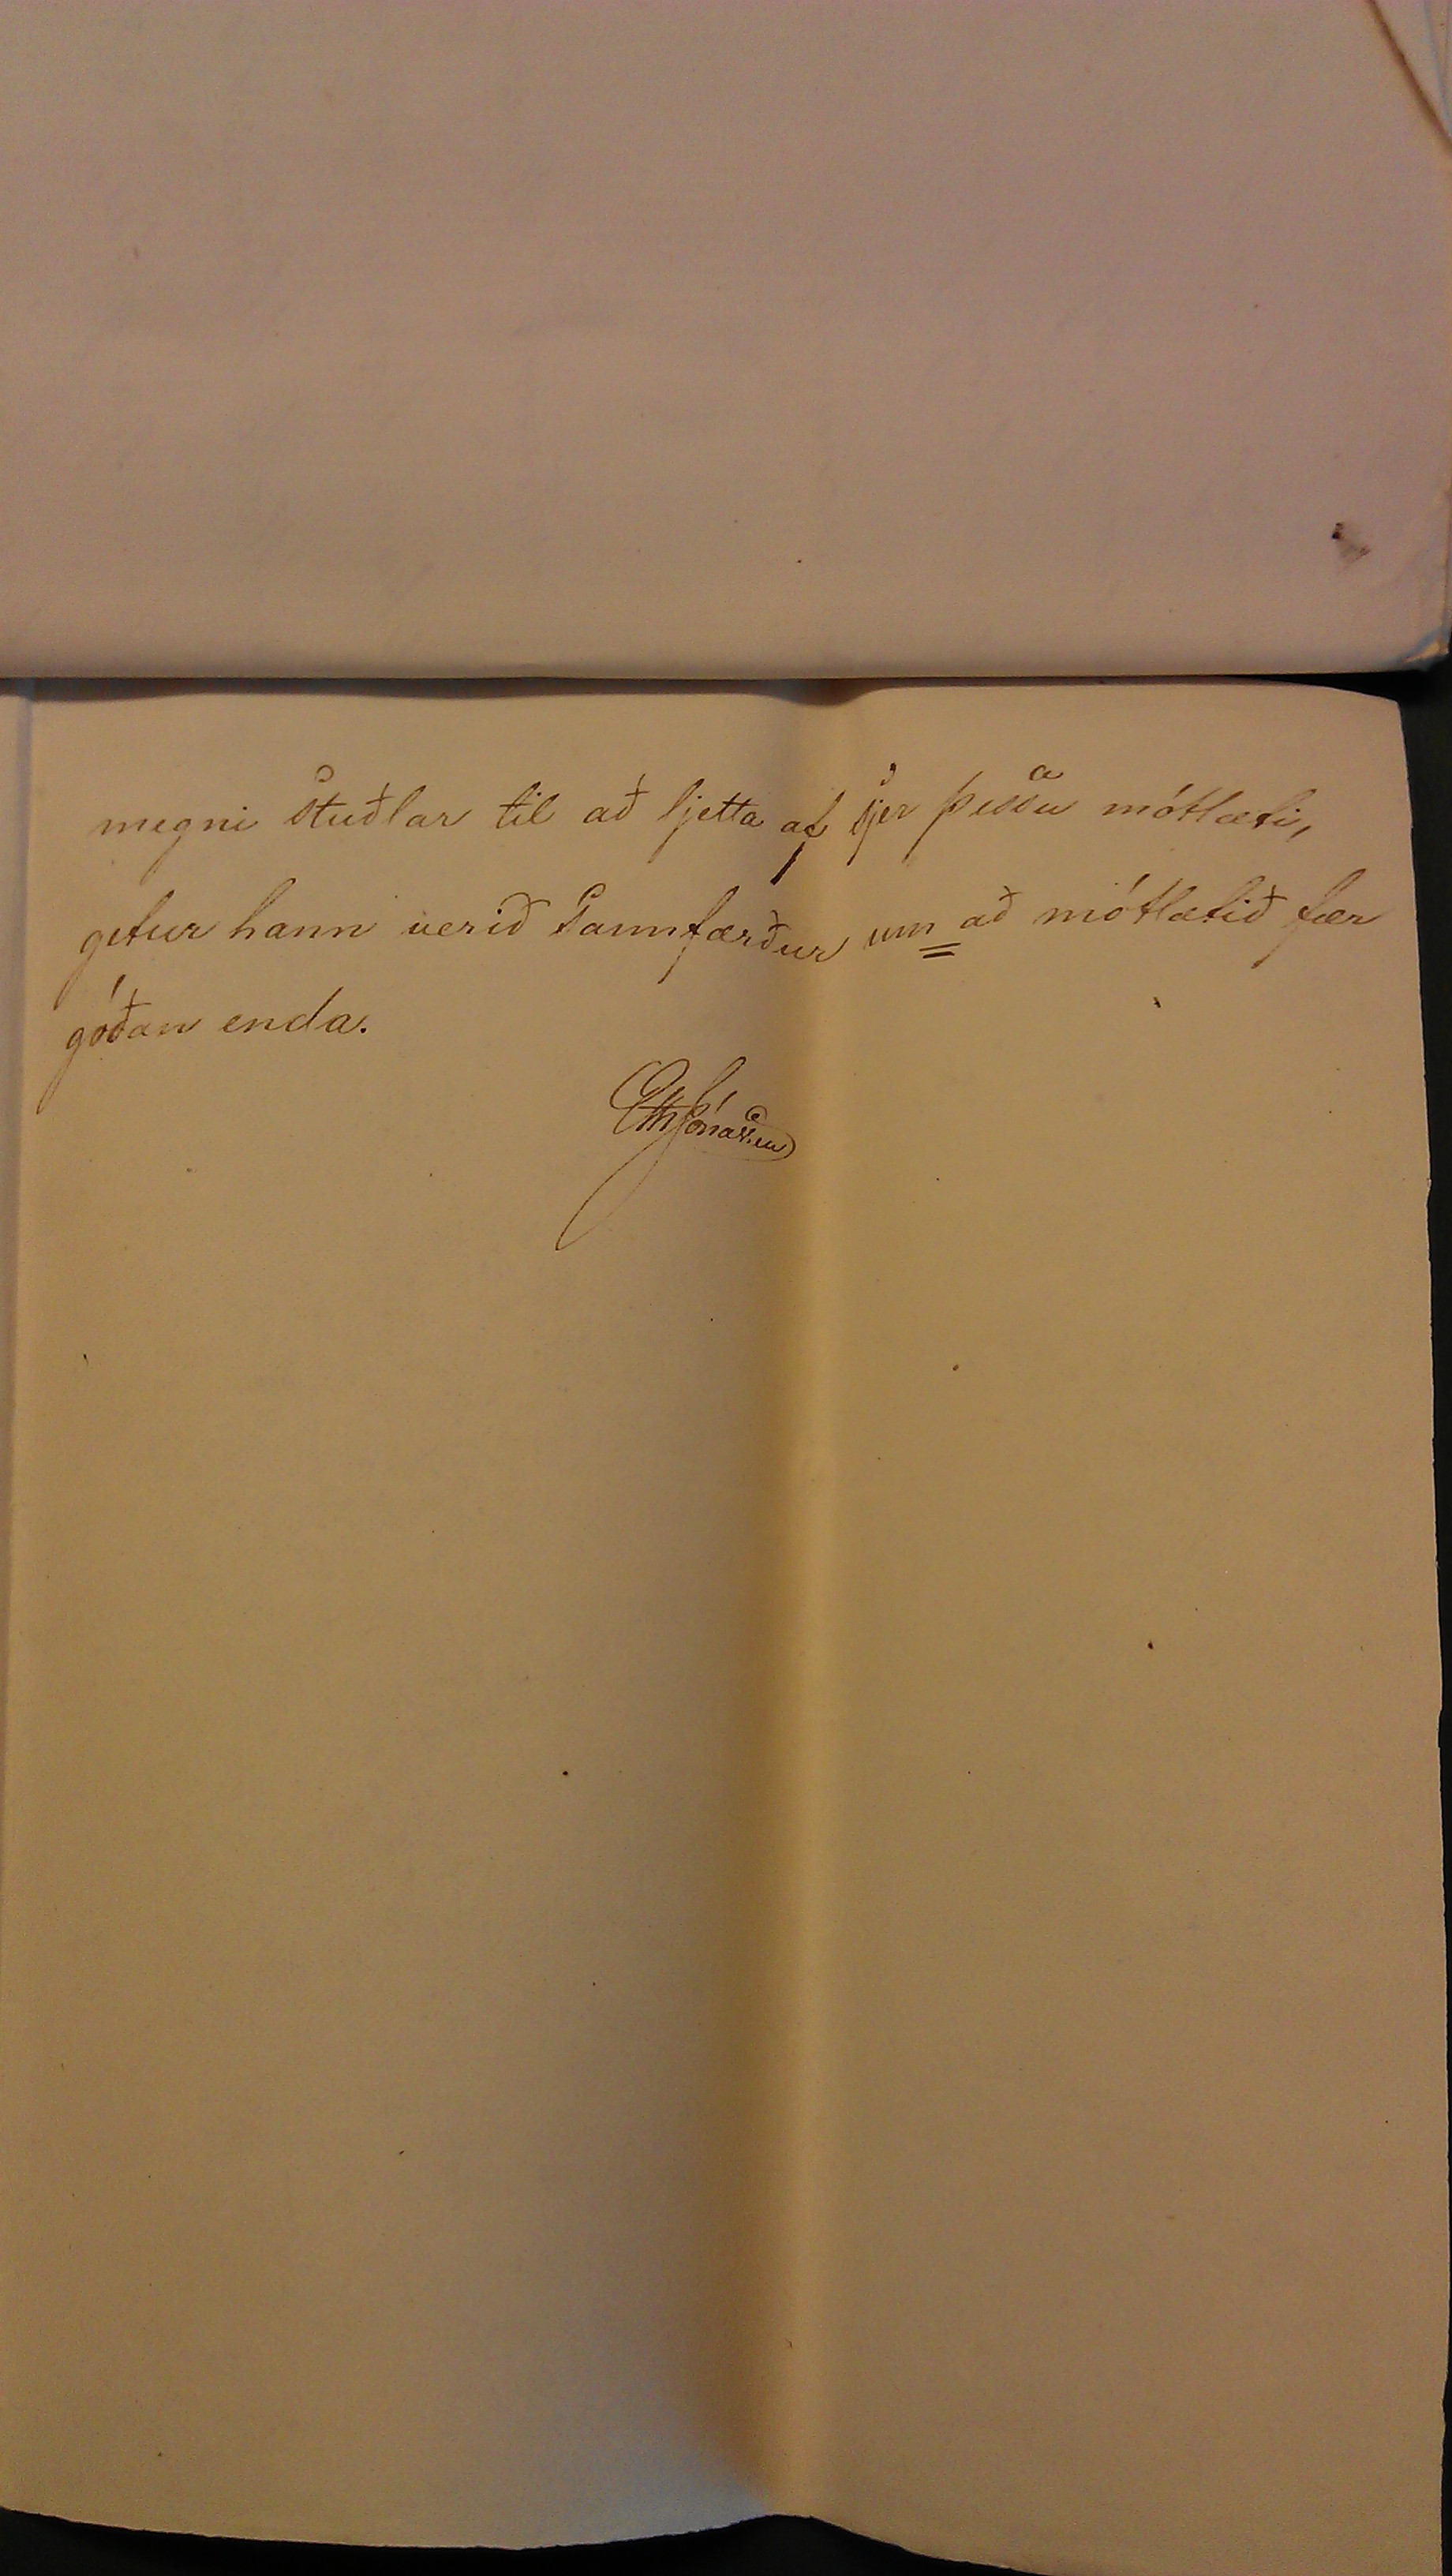 megni stuðlar til að ljetta af sjer þessu mótlæti,
getur hann verið sannfærður um að mótlætið fær
góðan enda.